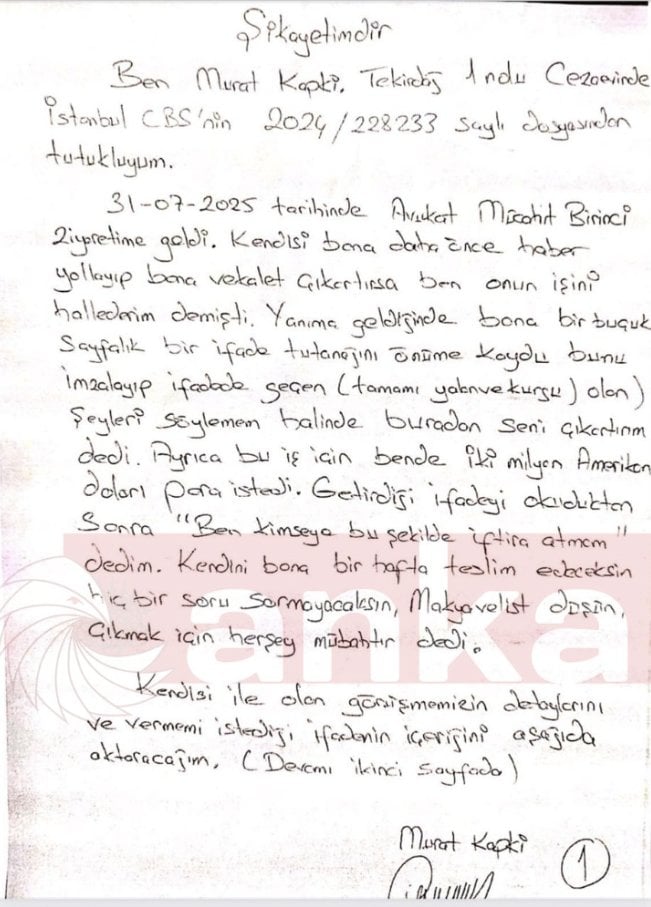 Şikayetimdir
Ben Murat Kapki. Tekirdağ 1 nolu Cezaevinde
İstanbul CBS'nin 2024/228233 sayılı dosyasından
tutukluyum.
31-07-2025 tarihinde Avukat Mücahit Birinci
Ziyaretime geldi. Kendisi bana daha önce haber
yollayıp bana vekalet çıkartırsa ben onun işini
hallederim demişti. Yanıma geldiğinde bana bir buçuk
Sayfalık bir ifade tutanağını önüme koydu bunu
imzalayıp ifadede geçen (tamamı yalan ve kurgu) olan)
Şeyleri söylemem halinde buradan seni çıkartırım
dedi. Ayrıca bu iş için bende iki milyon Amerikan
doları para istedi. Getirdiği ifadeyi okuduktan
Sonra "Ben kimseye bu şekilde iftira atmam"
dedim. Kendini bana bir hafta teslim edeceksin
hiç bir soru sormayacaksın, Makyavelist düşün,
Çıkmak için herşey mübahtır dedi.
anka
Kendisi ile olan görüşmemizin detaylarını
ve vermemi istediği ifadenin içeriğini aşağıda
aktaracağım. (Devamı ikinci sayfada)
Murat Kapki
1